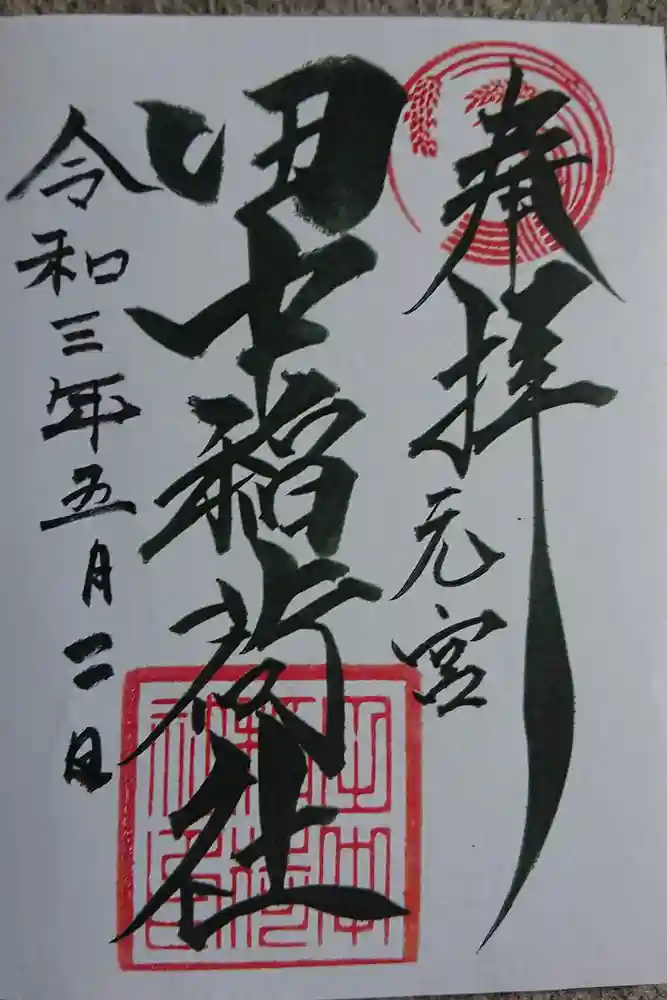 奉拝
元宮
稲荷社
令和三年五月二日